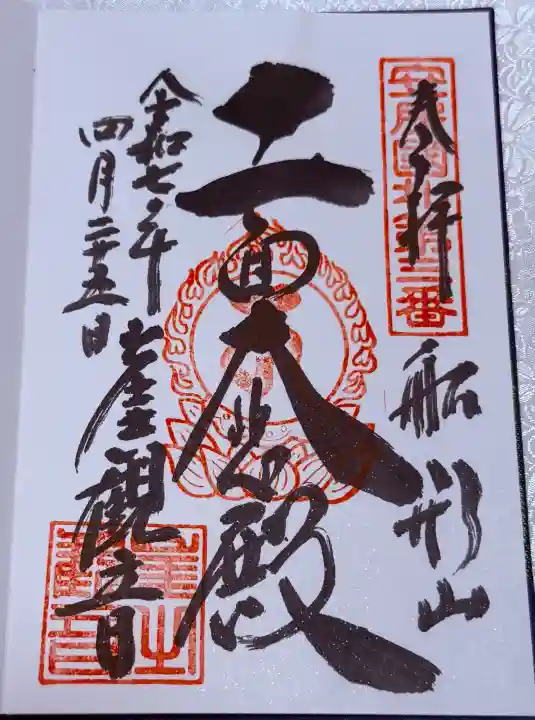 奉拝
安房国札所三番
船形山
十一面大悲殿
令和七年
四月二十五日
崖観音